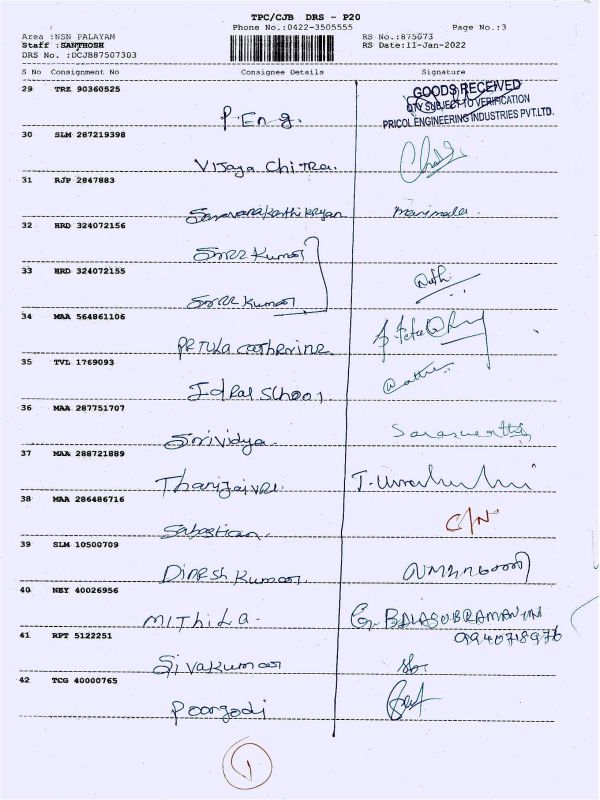 TPC/CJB DRS - P20
Phone No.:0422-3505555 Page No.:3
Area :NSN PALAYAM RS No.:875073
Staff :SANTHOSH RS Date:11-Jan-2022
DRS No. :DCJB87507303
S No Consignment No Consignee Details Signature
29 TRZ 90360525
GOODS RECEIVED
QTY SUBJECT TO VERIFICATION
PRICOL ENGINEERING INDUSTRIES PVT.LTD.
P. Eng.
30 SLM 287219398
Vijaya Chitra.
31 RJP 2847883
Saravanakarthikeyan marimala.
32 HRD 324072156
Kumar
33 HRD 324072155
Kumar
34 MAA 564861106
PETULA Catherine
35 TVL 1769093
Ideal School
36 MAA 287751707
Srividya Saraswathi
37 MAA 288721889
38 MAA 286486716
Sabastian C/N
39 SLM 10500709
Dinesh Kumar
40 NEY 40026956
MITHILA G. BALASUBRAMANIAN
9940718976
41 RPT 5122251
Sivakumar
42 TCG 40000765
Poongodi
1